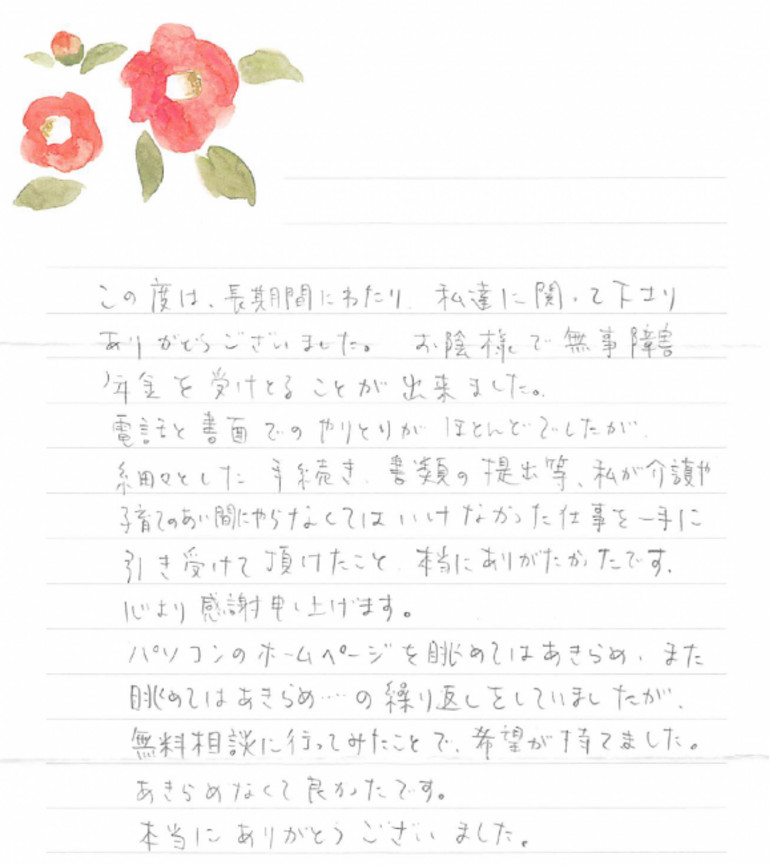 この度は、長期間にわたり、私達に関って下さり
ありがとうございました。お陰様で無事障害
年金を受けとることが出来ました。
電話と書面でのやりとりがほとんどでしたが、
細々とした手続き、書類の提出等、私が介護や
子育てのあい間にやらなくてはいけなかった仕事を一手に
引き受けて頂けたこと、本当にありがたかったです。
心より感謝申し上げます。
パソコンのホームページを眺めてはあきらめ、また
眺めてはあきらめ……の繰り返しをしていましたが、
無料相談に行ってみたことで、希望が持てました。
あきらめなくて良かったです。
本当にありがとうございました。